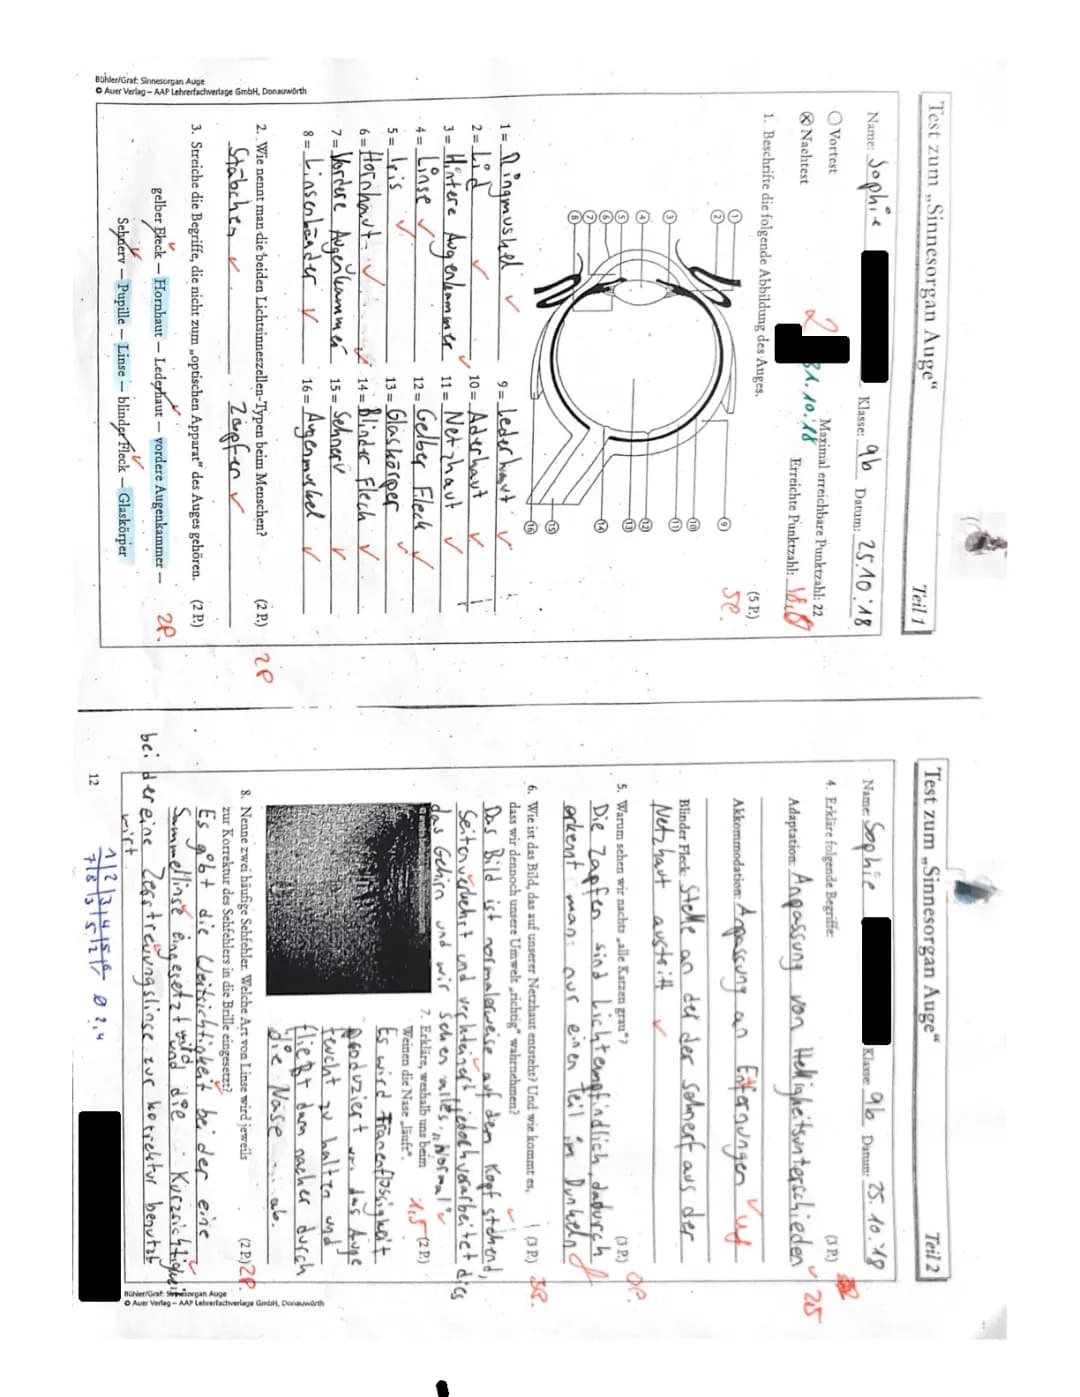 Test zum „Sinnesorgan Auge“ Teil 1
Name: Sophie Klasse: 9b Datum: 25.10.18
○ Vortest Maximal erreichbare Punktzahl: 22
⊗ Nachtest 2 31.10.18 Erreichte Punktzahl:
1. Beschrifte die folgende Abbildung des Auges. (5 P.)
5P.
1
2
3
4
5
6
7
8
9
10
11
12
13
14
15
16
1 = Ringmuskel 9 = Lederhaut
2 = Lid 10 = Aderhaut
3 = Hintere Augenkammer 11 = Netzhaut
4 = Linse 12 = Gelber Fleck
5 = Iris 13 = Glaskörper
6 = Hornhaut 14 = Blinder Fleck
7 = Vordere Augenkammer 15 = Sehnerv
8 = Linsenbänder 16 = Augenmuskel
2. Wie nennt man die beiden Lichtsinneszellen-Typen beim Menschen? (2 P.)
Stäbchen Zapfen 2P
3. Streiche die Begriffe, die nicht zum „optischen Apparat“ des Auges gehören. (2 P.)
2P.
gelber Fleck – Hornhaut – Lederhaut – vordere Augenkammer –
Sehnerv – Pupille – Linse – blinder Fleck – Glaskörper
Bühler/Graf: Sinnesorgan Auge
© Auer Verlag – AAP Lehrerfachverlage GmbH, Donauwörth
Test zum „Sinnesorgan Auge“ Teil 2
Name: Sophie Klasse: 9b Datum: 25.10.18
4. Erkläre folgende Begriffe: (3 P.)
Adaptation: Anpassung von Helligkeitsunterschieden
Akkommodation: Anpassung an Entfernungen
Blinder Fleck: Stelle an der der Sehnerf aus der
Netzhaut austritt
5. Warum sehen wir nachts „alle Katzen grau“? (3 P.) 0P.
Die Zapfen sind Lichtempfindlich, dadurch
erkennt man nur einen Teil im Dunkeln
6. Wie ist das Bild, das auf unserer Netzhaut entsteht? Und wie kommt es,
dass wir dennoch unsere Umwelt „richtig“ wahrnehmen? (3 P.) 3P.
Das Bild ist normalerweise auf dem Kopf stehend,
Seitenverkehrt und verkleinert, jedoch verarbeitet dies
das Gehirn und wir sehen alles „normal“
7. Erkläre, weshalb uns beim
Weinen die Nase „läuft“. 1,5 (2 P.)
Es wird Tränenflüssigkeit
produziert um das Auge
feucht zu halten und
fließt dann nacher durch
die Nase ab.
8. Nenne zwei häufige Sehfehler. Welche Art von Linse wird jeweils
zur Korrektur des Sehfehlers in die Brille eingesetzt? (2 P.) 2P.
Es gibt die Weitsichtigkeit bei der eine
Sammellinse eingesetzt wird, und die Kurzsichtigkeit
bei der eine Zerstreuungslinse zur korrektur benutzt
wird
Bühler/Graf: Sinnesorgan Auge
© Auer Verlag – AAP Lehrerfachverlage GmbH, Donauwörth
12
1 2 3 4 5 6
7 8 3 5 2 / Ø 2,4